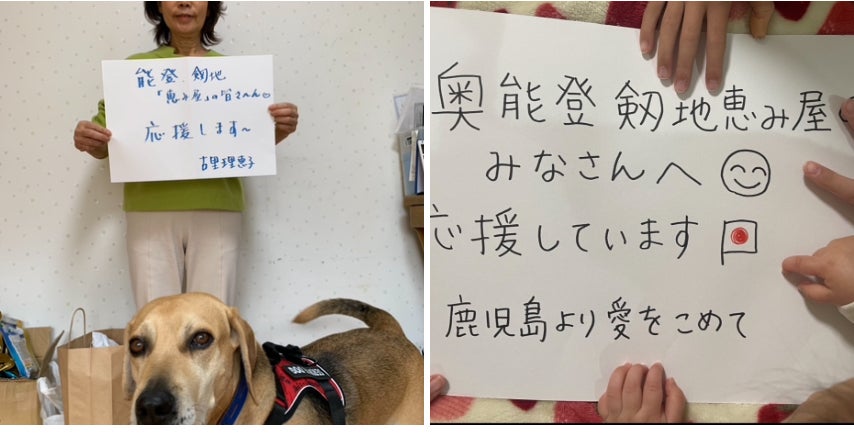 能登 剱地
「恵み屋」の皆さ～ん♡
応援します～
古里理恵子
奥能登 剱地恵み屋
みなさんへ
応援しています
鹿児島より愛をこめて